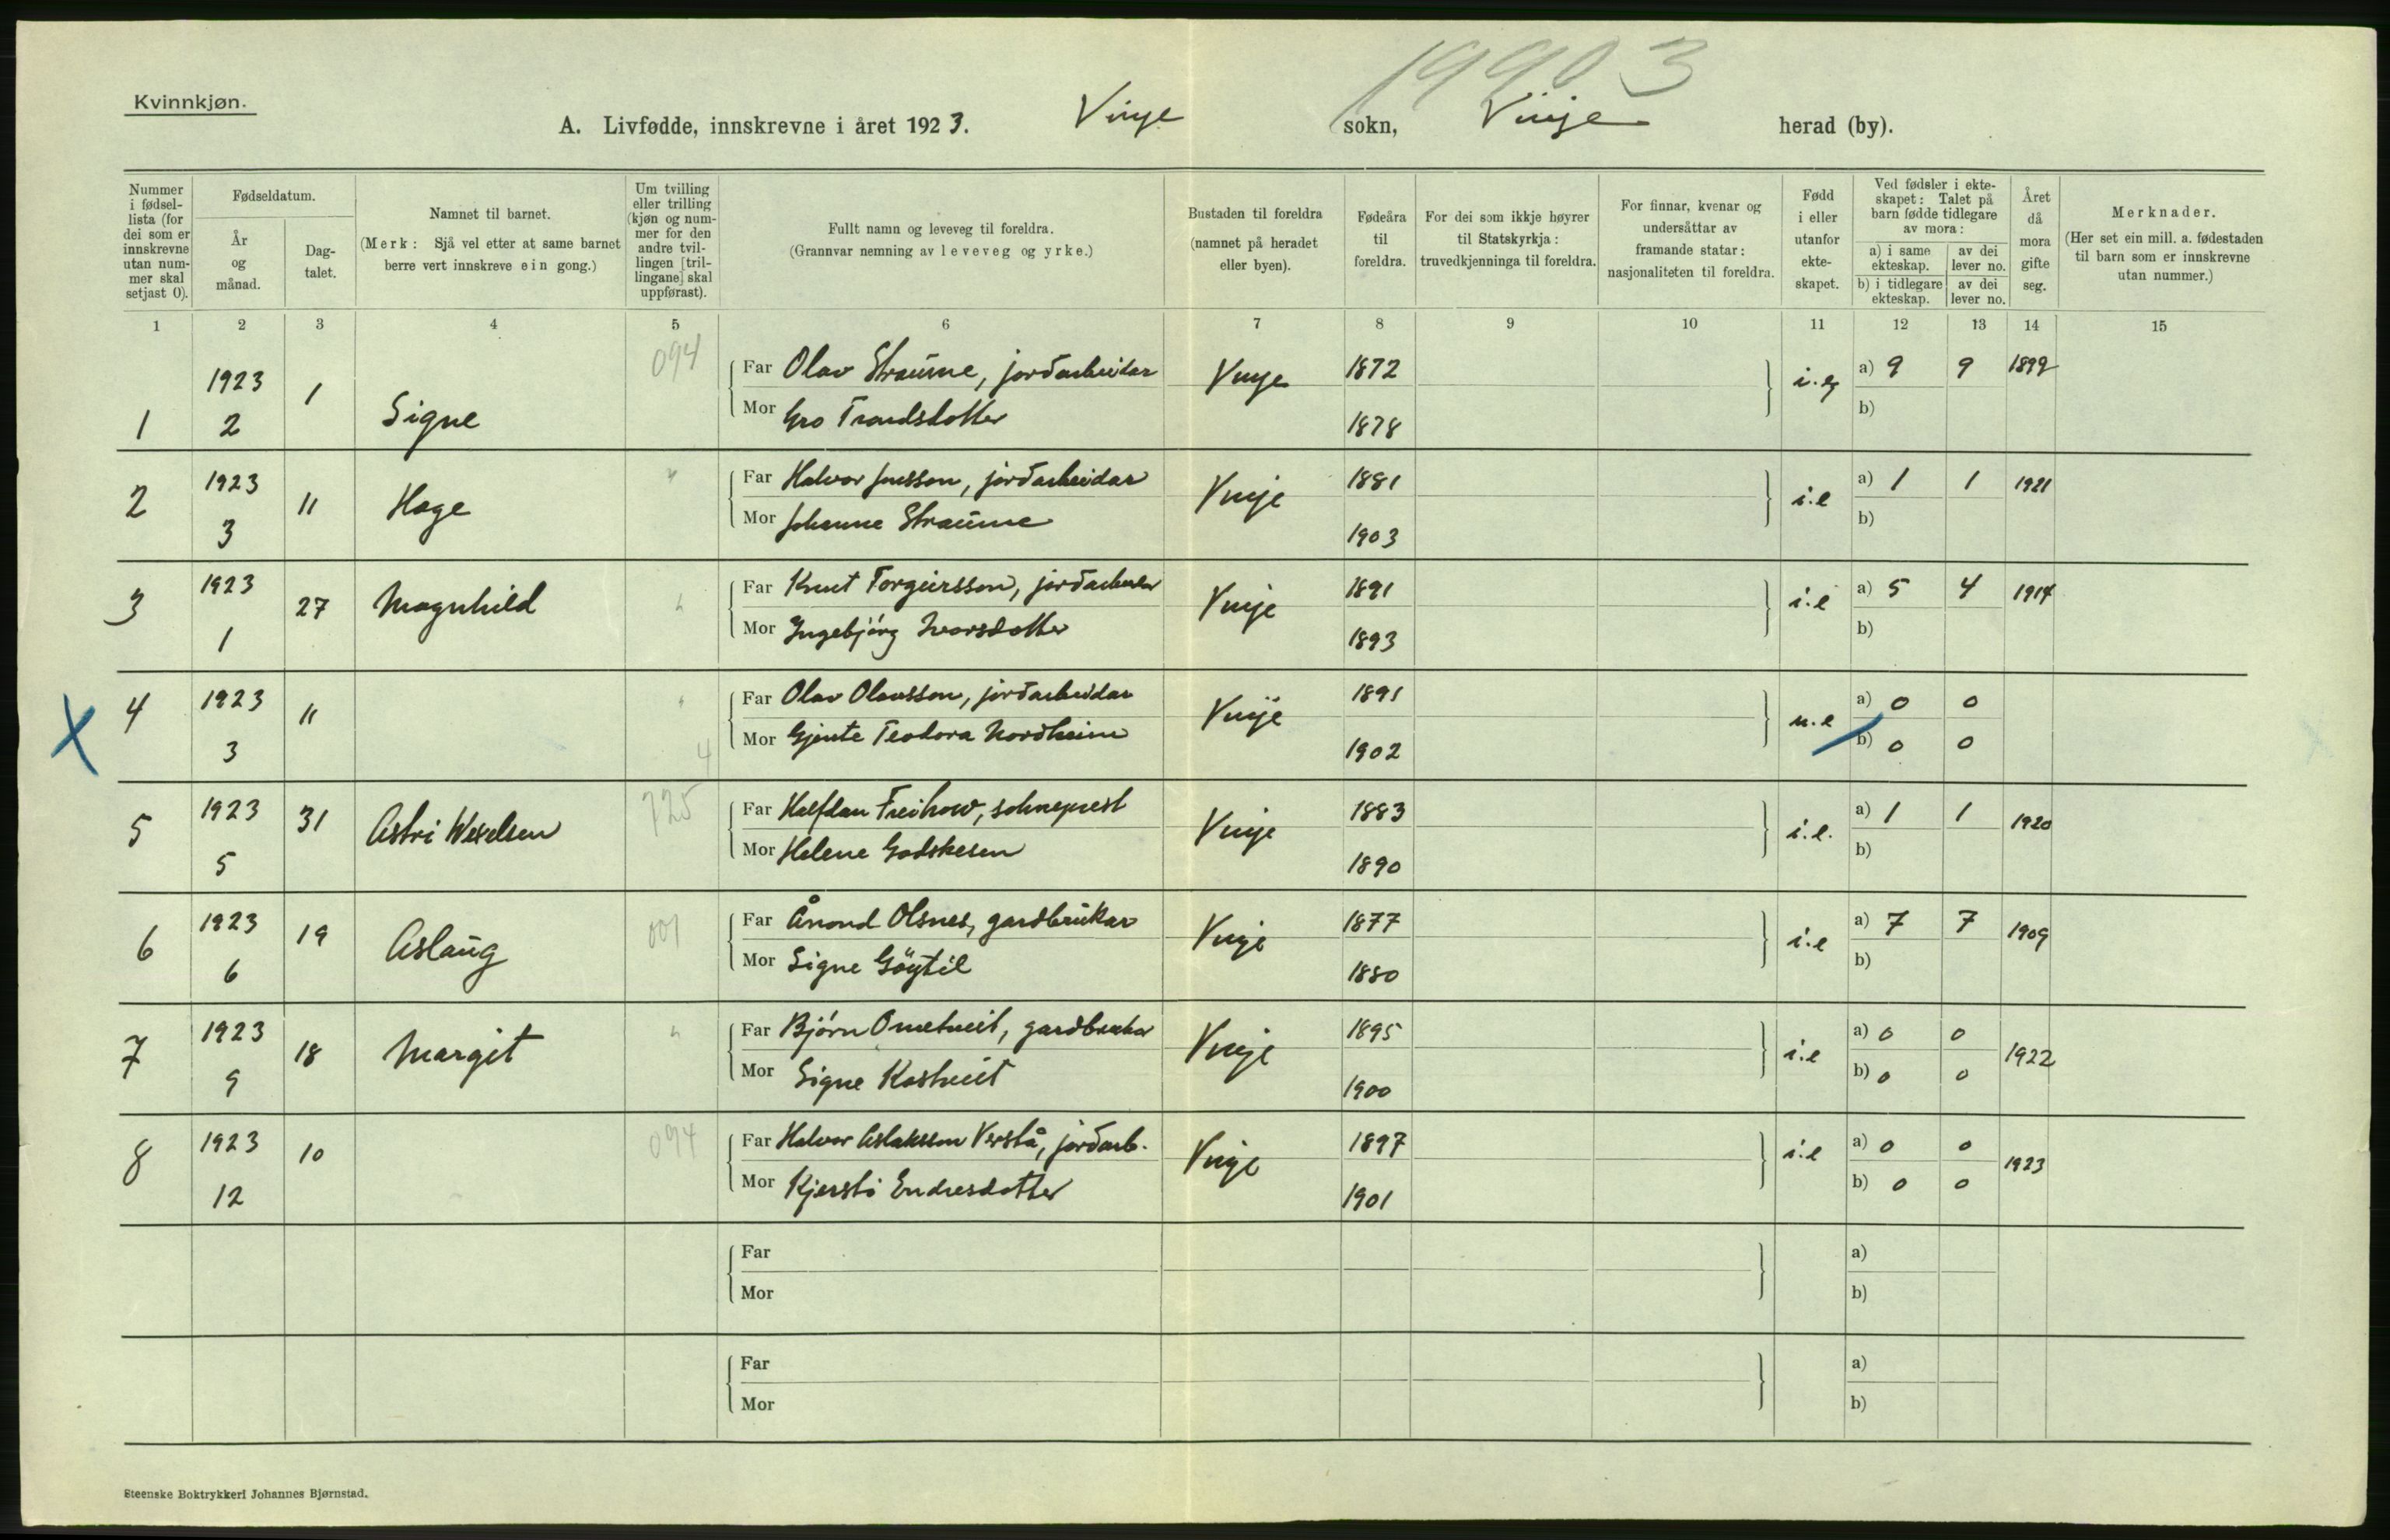 19903
Kvinnkjøn.
A. Livfødde, innskrevne i året 1923. Vinje sokn, Vinje herad (by).
Nummer i fødsel-lista (for dei som er innskrevne utan num-mer skal setjast 0).
Fødseldatum.
År og månad.
Dag-talet.
Namnet til barnet.
(Merk: Sjå vel etter at same barnet berre vert innskreve ein gong.)
Um tvilling eller trilling (kjøn og num-mer for den andre tvil-lingen [tril-lingane] skal uppførast).
Fullt namn og leveveg til foreldra.
(Grannvar nemning av leveveg og yrke.)
Bustaden til foreldra (namnet på heradet eller byen).
Fødeåra til foreldra.
For dei som ikkje høyrer til Statskyrkja: truvedkjenninga til foreldra.
For finnar, kvenar og undersåttar av framande statar: nasjonaliteten til foreldra.
Fødd i eller utanfor ekte-skapet.
Ved fødsler i ekte-skapet: Talet på barn fødde tidlegare av mora:
a) i same ekteskap. av dei lever no.
b) i tidlegare ekteskap. av dei lever no.
Året då mora gifte seg.
Merknader.
(Her set ein mill. a. fødestaden til barn som er innskrevne utan nummer.)
1 2 3 4 5 6 7 8 9 10 11 12 13 14 15
1 1923 2 1 Signe 094 Far Olav Straume, jordarbeidar Vinje 1872 i.e a) 9 9 1899
Mor Gro Trondsdotter 1878 b)
2 1923 3 11 Hage Far Halvor Jonsson, jordarbeidar Vinje 1881 i.e a) 1 1 1921
Mor Johanne Straume 1903 b)
3 1923 1 27 Magnhild Far Knut Torgeirsson, jordarbeidar Vinje 1891 i.e a) 5 4 1914
Mor Ingebjörg Ivarsdotter 1893 b)
X 4 1923 3 11 Far Olav Olavsson, jordarbeidar Vinje 1891 u.e a) 0 0
4 Mor Gjente Teodora Nordheim 1902 b) 0 0
5 1923 5 31 Astri Wexelsen 725 Far Halfdan Freihow, sokneprest Vinje 1883 i.e. a) 1 1 1920
Mor Helene Godskesen 1890 b)
6 1923 6 19 Aslaug 001 Far Ånond Olsnes, gardbrukar Vinje 1877 i.e a) 7 7 1909
Mor Signe Göytil 1880 b)
7 1923 9 18 Margit Far Björn Ometveit, gardbrukar Vinje 1895 i.e a) 0 0 1922
Mor Signe Kostveit 1900 b) 0 0
8 1923 12 10 094 Far Halvor Aslaksson Verstå, jordarb. Vinje 1897 i.e a) 0 0 1923
Mor Kjersti Endresdotter 1901 b) 0 0
Far a)
Mor b)
Far a)
Mor b)
Steenske Boktrykkeri Johannes Bjørnstad.